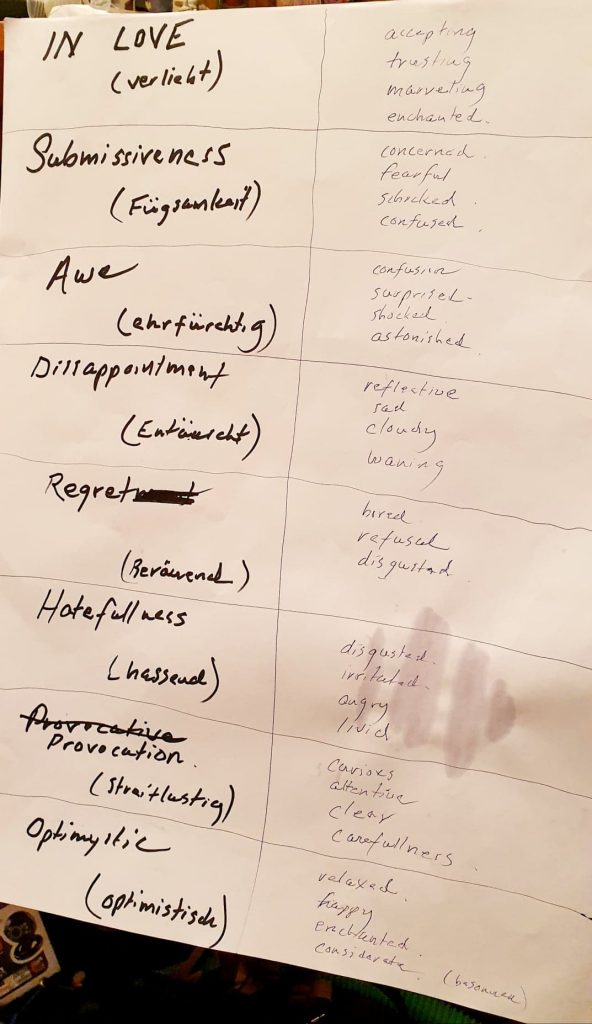 IN LOVE
(verliebt)
accepting
trusting
marveling
enchanted.
Submissiveness
(Fügsamkeit)
concerned.
fearful
schocked.
confused.
Awe
(ehrfürchtig)
confusion
surprised.
shocked.
astonished.
Dissappointment
(Entäuscht)
reflective
sad
cloudy
waning
Regret
(Beräuend)
bored.
refused
disgusted.
Hatefullness
(hassend)
disgusted.
irritated.
angry
livid
Provocative
Provocation.
(Streitlustig)
curious
attentive
clear
carefullners.
Optimystic
(optimistisch)
relaxed.
happy
enchanted.
considerate. (besonnen)